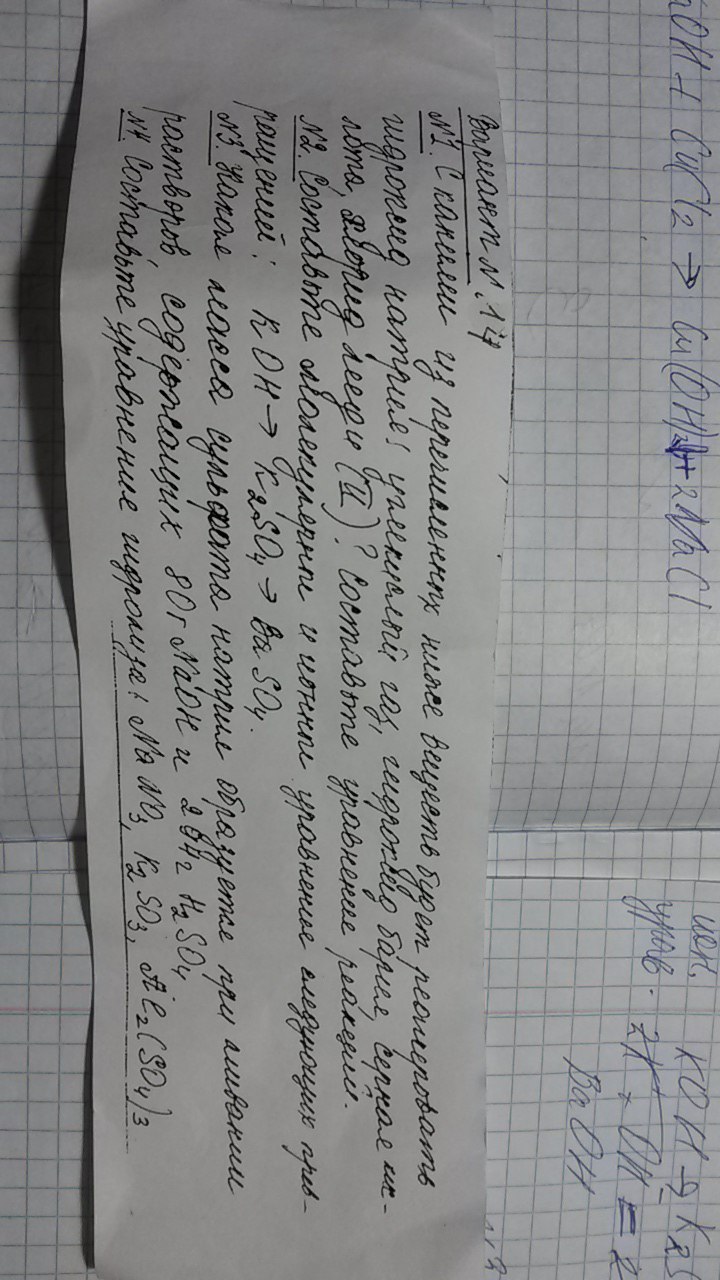 Вариант N. 17
N1. С какими из перечисленных ниже веществ будет реагировать
гидроксид натрия: углекислый газ, гидроксид бария, серная кис-
лота, хлорид меди (II)? Составьте уравнение реакций.
N2. Составьте молекулярные и ионные уравнение следующих прев-
ращений: KOH → K2SO4 → BaSO4.
N3. Какая масса сульфата натрия образуется при сливании
растворов, содержащих 80г NaOH и H2SO4
N4. Составьте уравнение гидролиза: NaNO3, K2SO3, Al2(SO4)3
OH + CuCl2 → Cu(OH)2 + 2NaCl
ион.
урав.
KOH → K2S
OH = 2
BaOH